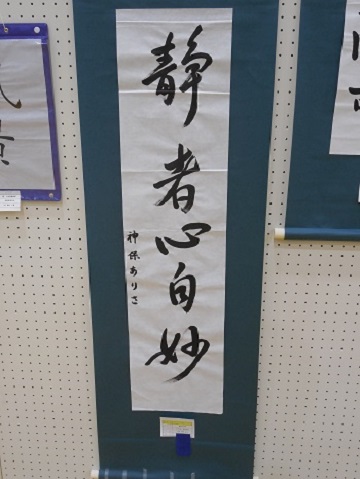 静者心自妙
神保ありさ